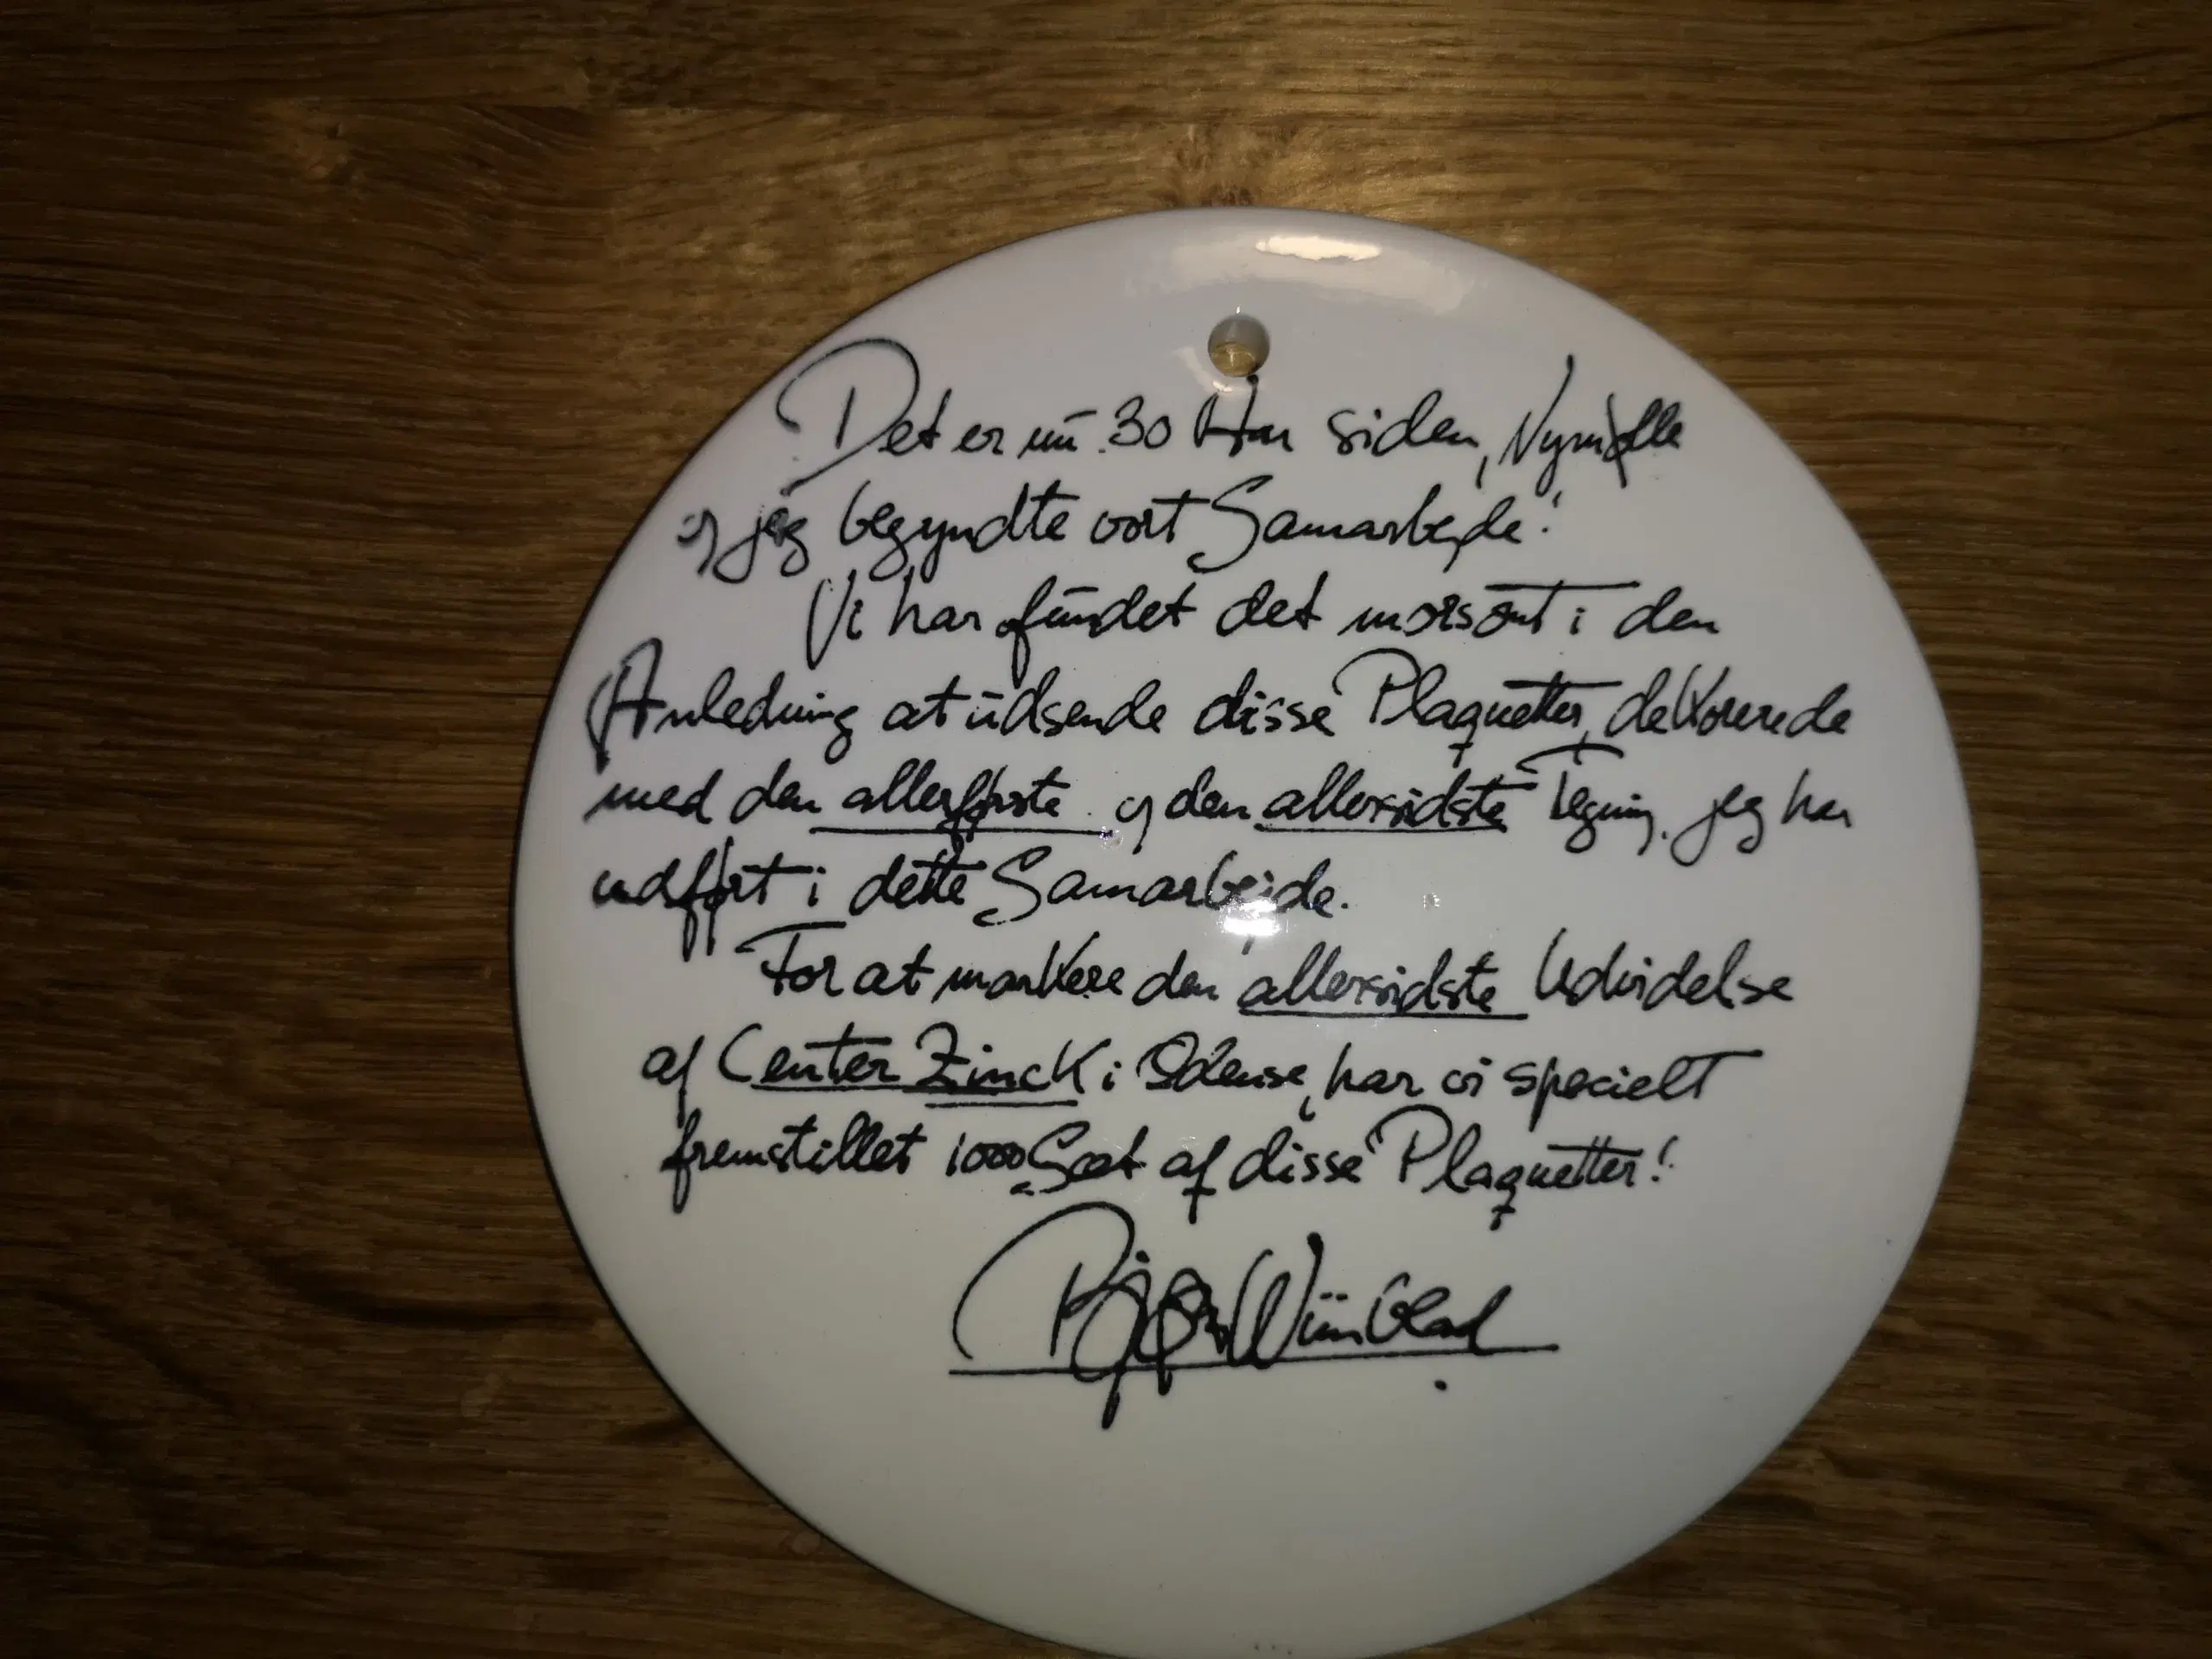 Det er nu 30 Aar siden, Nymølle
og jeg begyndte vort Samarbejde!
Vi har fundet det morsomt i den
Anledning at udsende disse Plaquetter, dekorerede
med den allerførste og den allersidste Tegning, jeg har
udført i dette Samarbejde.
For at markere den allersidste Udvidelse
af Center Zinck i Odense, har vi specielt
fremstillet 1000 Sæt af disse Plaquetter!
Bjørn Wiinblad